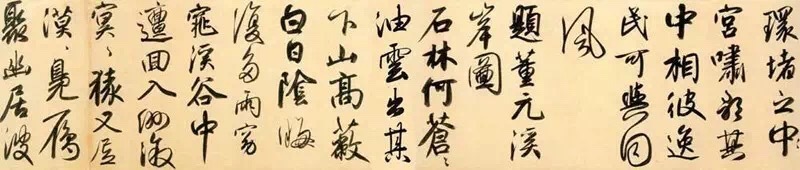 環堵之中
宮嘯歌其
中相彼逸
民可與同
風
題董元溪
岸圖
石林何蒼〻
油雲出其
下山高蔽
白日陰晦
復多雨窈
窕溪谷中
邅回入洲溆
冥〻猿又居
漠〻鳧雁
聚幽居